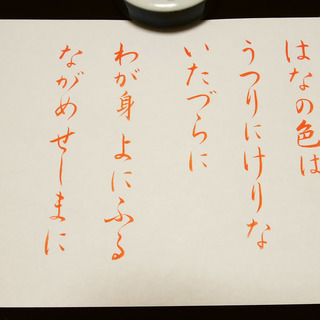 はなの色は
うつりにけりな
いたづらに
わが身 よにふる
ながめせしまに